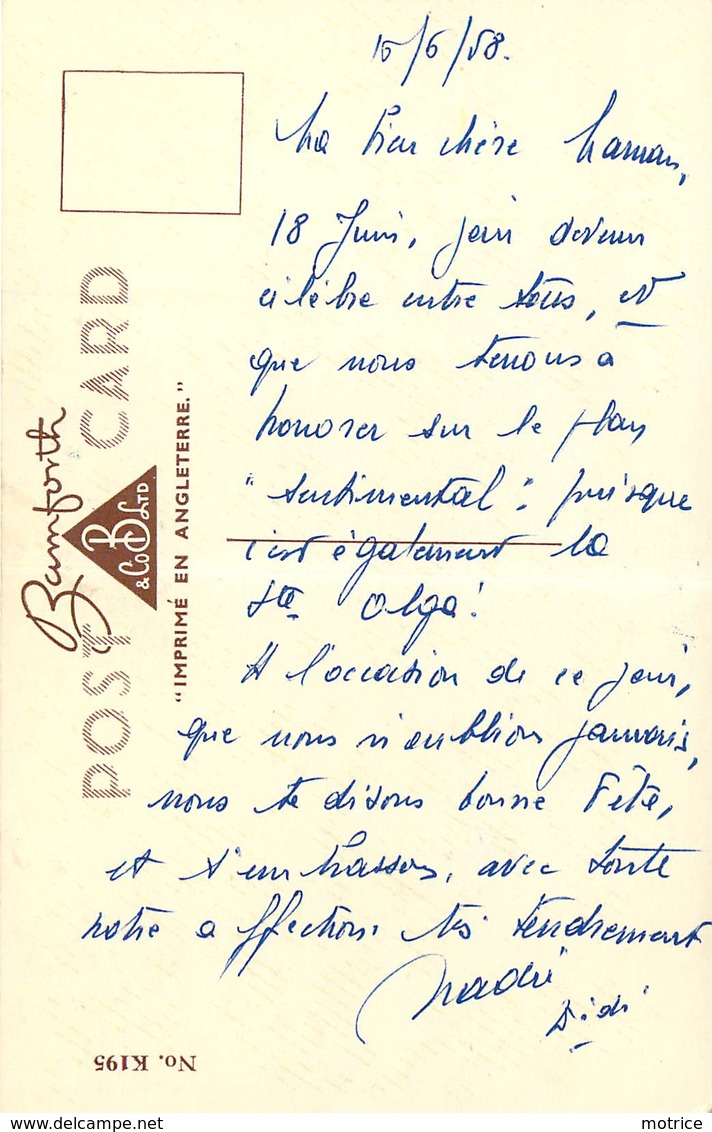 15/6/58.
Ma bien chère Maman,
18 Juin, jour devenu
célèbre entre tous, et
que nous tenons à
honorer sur le plan
"sentimental", puisque
c'est également la
Ste Olga!
A l'occasion de ce jour,
que nous n'oublions jamais,
nous te disons bonne Fête,
et t'embrassons, avec toute
notre affection. très tendrement
Didi
POST CARD
Bamforth
& Co Ltd
B
"IMPRIMÉ EN ANGLETERRE."
No. K195
motrice